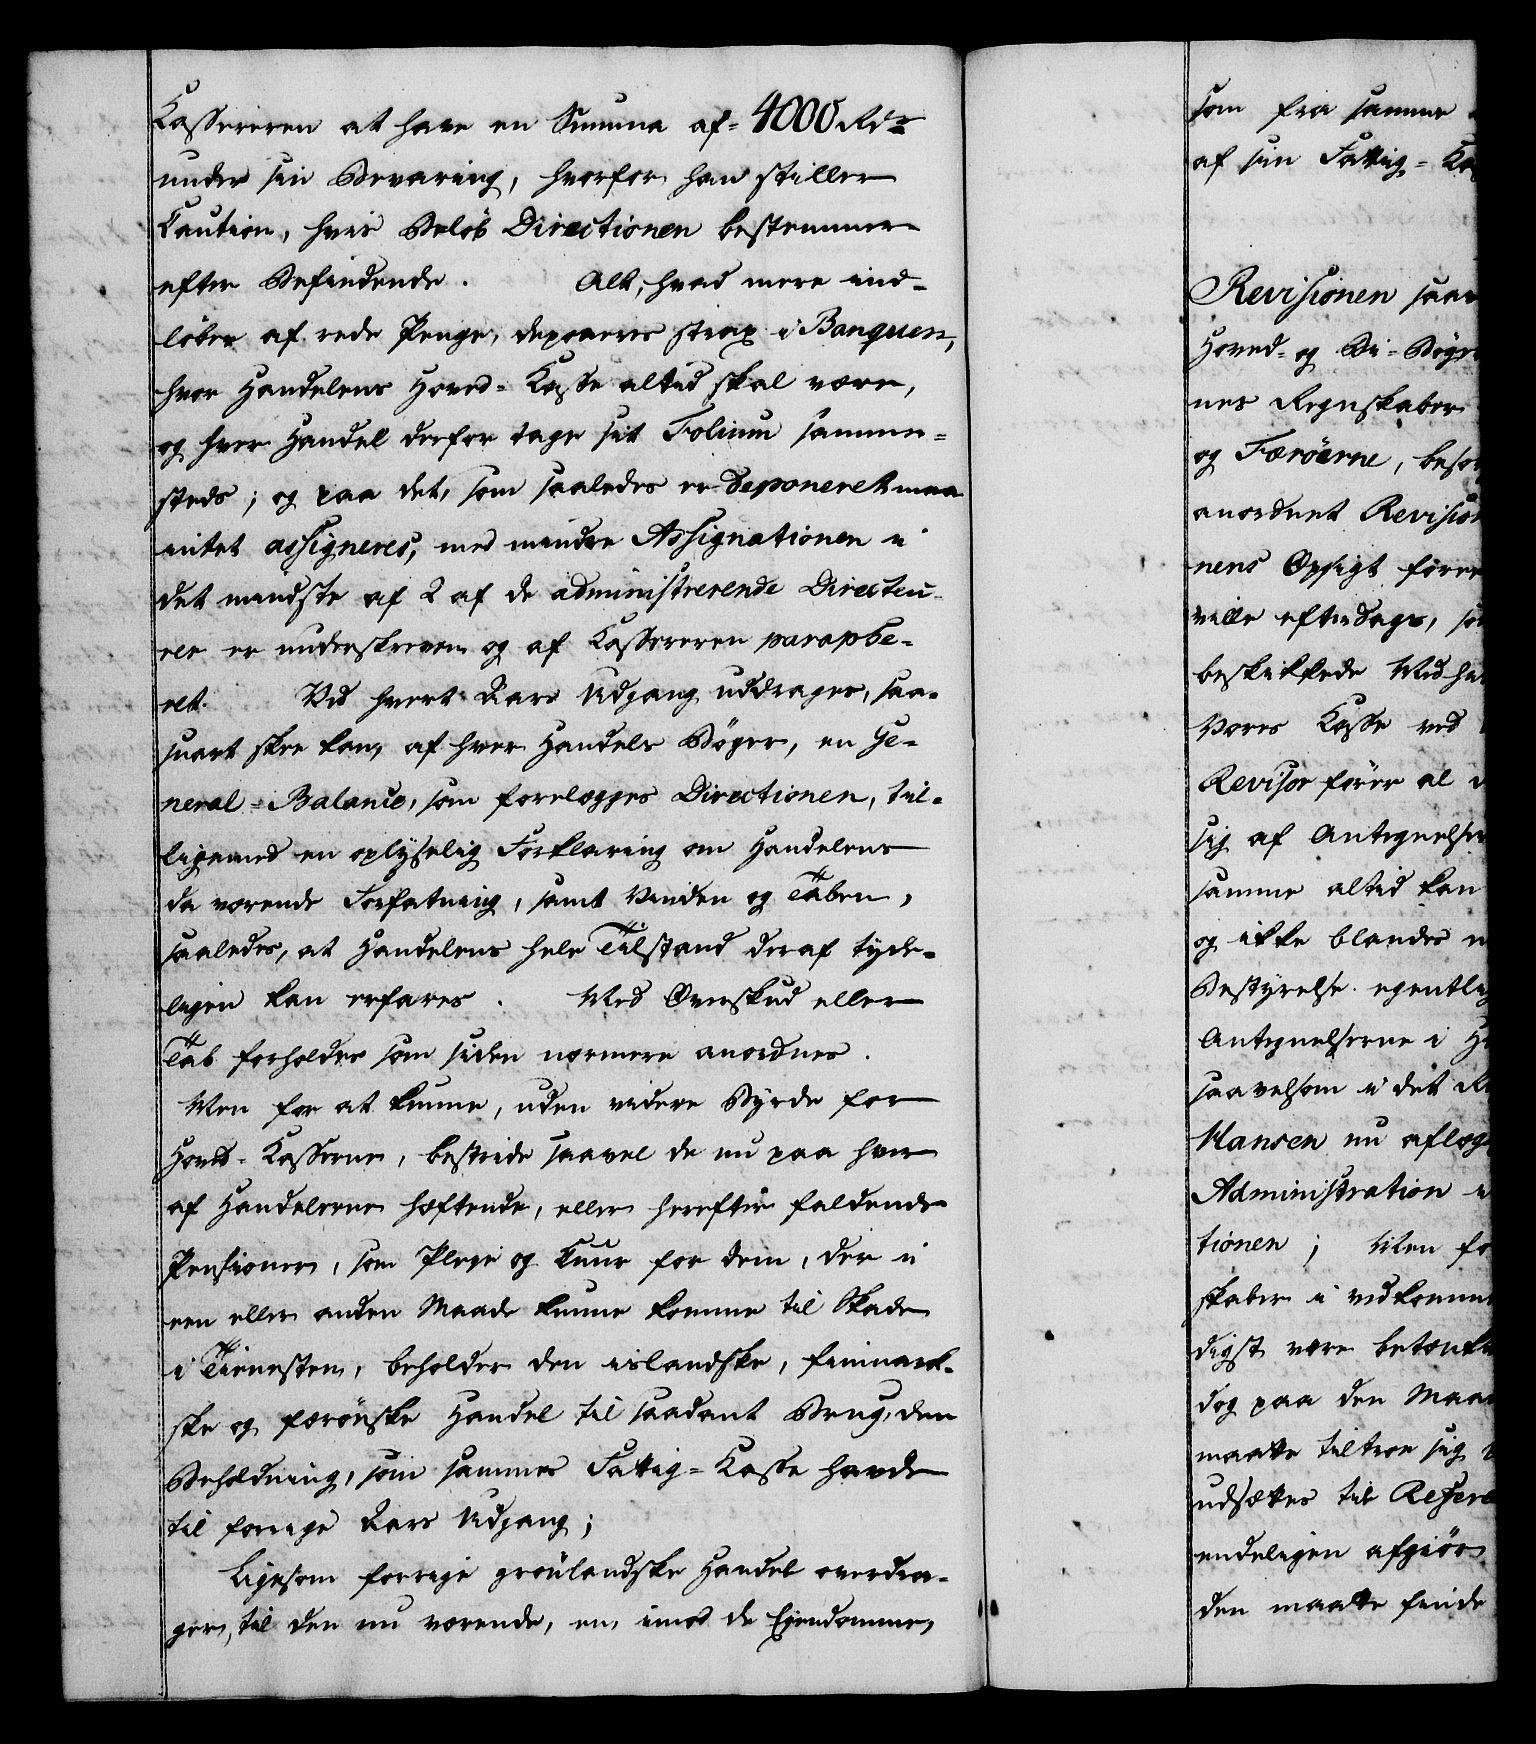 Kassereren at have en Summa af 4000 Rdr
under sin Bevaring, hvorfor han stiller
Caution, hvis Beløb Directionen bestemmer
efter Befindende. Alt, hvad mere ind-
løber af rede Penge, deponeres strax i Banquen,
hvor Handelens Hoved-Kasse altid skal være,
og hver Handel derfor tage sit Folium samme-
steds; og paa det, som saaledes er deponeret maa
intet assigneres, med mindre Assignationen i
det mindste af 2 af de administrerende Directeu-
rer er underskreven og af Kassereren paraphe-
ret. Ved hvert Aars Udgang uddrages, saa-
snart skee kan, af hver Handels Bøger, en Ge-
neral-Balance, som forelægges Directionen, til-
ligemed en oplyselig Forklaring om Handelens
da værende Forfatning, samt Vinden og Taben,
saaledes, at Handelens hele Tilstand deraf tyde-
ligen kan erfares. Med Overskud eller
Tab forholdes som siden nærmere anordnes.
Men for at kunne, uden videre Byrde for
Hoved-Kasserne, bestride saavel de nu paa hver
af Handelerne hæftende, eller herefter faldende
Pensioner, som Pleje og Kuur for dem, der i
een eller anden Maade kunne komme til Skade
i Tienesten, beholder den islandske, finmark-
ske og færøiske Handel til saadant Brug, den
Beholdning, som sammes Fattig-Kasse havde
til forrige Aars Udgang;
Ligesom forrige grønlandske Handel overdra-
ger, til den nu værende, en, imod de Ejendomme,
som fra samme
af sin Fattig-
Revisionen
Hoved- og Bi-
nes Regnskaber
og Færøerne,
anordnet
nens Opsigt
ville efterdags,
beskikkede
Vores Kasse ved
Revisor fører al
sig af
samme altid kan
og ikke blandes
Bestyrelse
Antegnelserne i
saavelsom i det
Hansen nu
Administration
tionen; Men
skaber i
digst være
dog paa den
maatte tiltroe sig
udsættes til
endeligen afgiøre
den maatte finde